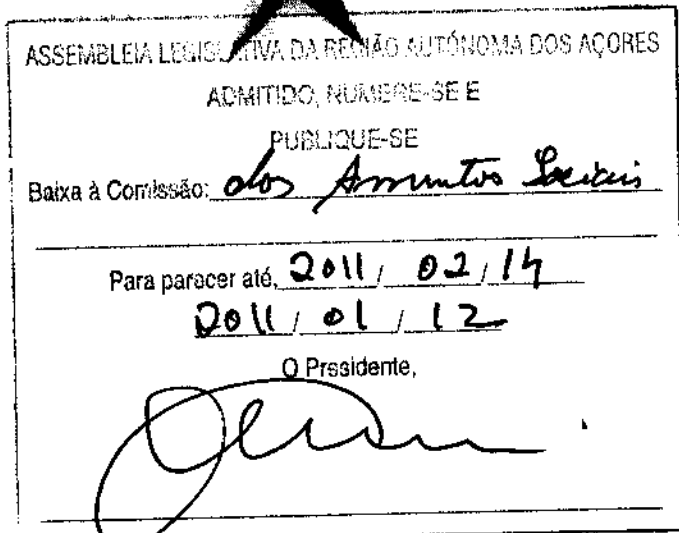 ASSEMBLEIA LEGISLATIVA DA REGIÃO AUTÓNOMA DOS AÇORES
ADMITIDO, NUMERE-SE E
PUBLIQUE-SE
Baixa à Comissão: dos Assuntos Sociais
Para parecer até, 2011 / 02 / 14
2011 / 01 / 12
O Presidente,